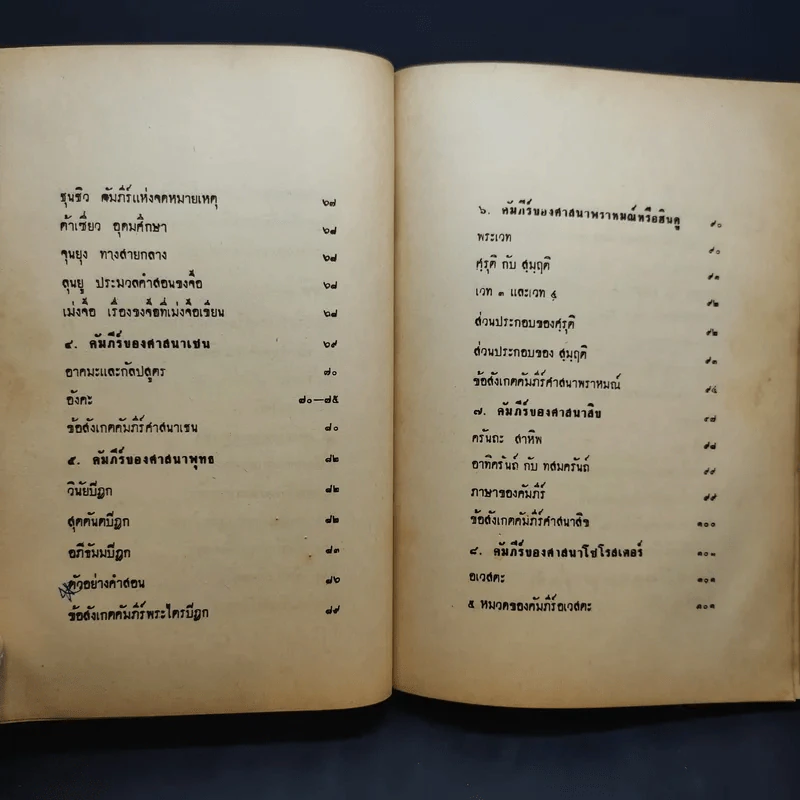 ชุนชิว คัมภีร์แห่งจดหมายเหตุ ๖๗
ต้าเซี่ยว อุดมศึกษา ๖๘
จุนยุง ทางสายกลาง ๖๘
ลุนยู ประมวลคำสอนขงจื้อ ๖๘
เม่งจื้อ เรื่องขงจื้อที่เม่งจื้อเขียน ๖๘
๔. คัมภีร์ของศาสนาเชน ๖๙
อาคมะและกัลปสูตร ๗๐
อังคะ ๗๐—๗๕
ข้อสังเกตคัมภีร์ศาสนาเชน ๘๐
๕. คัมภีร์ของศาสนาพุทธ ๘๒
วินัยปิฎก ๘๒
สุตตันตปิฎก ๘๒
อภิธัมมปิฎก ๘๓
ตัวอย่างคำสอน ๘๖
ข้อสังเกตคัมภีร์พระไตรปิฎก ๘๙
๖. คัมภีร์ของศาสนาพราหมณ์หรือฮินดู ๙๐
พระเวท ๙๐
ศฺรุติ กับ สฺมฺฤติ ๙๑
เวท ๓ และเวท ๔ ๙๒
ส่วนประกอบของศฺรุติ ๙๒
ส่วนประกอบของ สฺมฺฤติ ๙๓
ข้อสังเกตคัมภีร์ศาสนาพราหมณ์ ๙๔
๗. คัมภีร์ของศาสนาสิข ๙๘
ครันถะ สาหิพ ๙๘
อาทิครันถ์ กับ ทสมครันถ์ ๙๙
ภาษาของคัมภีร์ ๙๙
ข้อสังเกตคัมภีร์ศาสนาสิข ๑๐๐
๘. คัมภีร์ของศาสนาโซโรสเตอร์ ๑๐๑
อเวสตะ ๑๐๑
๕ หมวดของคัมภีร์อเวสตะ ๑๐๑